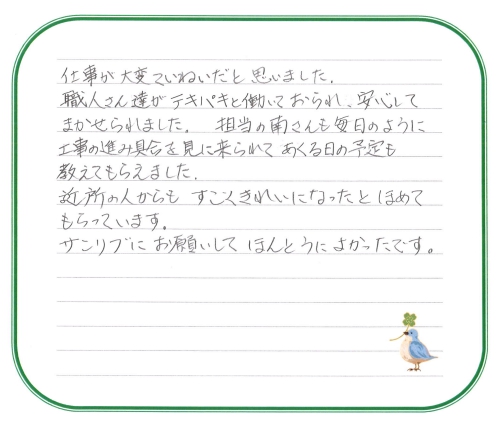 仕事が大変ていねいだと思いました.
職人さん達がテキパキと働いておられ、安心して
まかせられました. 担当の南さんも毎日のように
工事の進み具合を見に来られてあくる日の予定も
教えてもらえました.
近所の人からも すごくきれいになったとほめて
もらっています.
サンリブにお願いしてほんとうによかったです。